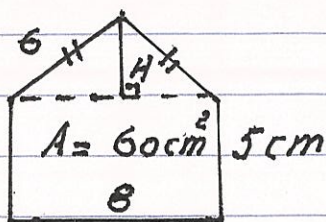 6
H
A = 60cm² 5cm
8